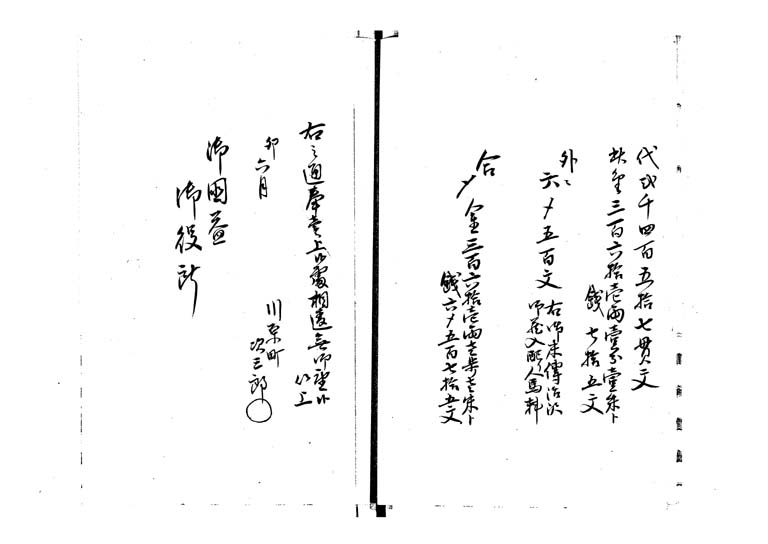 代弐千四百五拾七貫文
此金三百六拾壱両壹分壹朱ト
銭七拾五文
外ニ
六〆五百文
右御米傳治沢
御蔵入駄人馬料
合〆
金三百六拾壱両壱歩壱朱ト
銭六〆五百七拾五文
右之通奉売上候處相違無御座候
以上
卯六月
川原町
次三郎
御國益
御役所